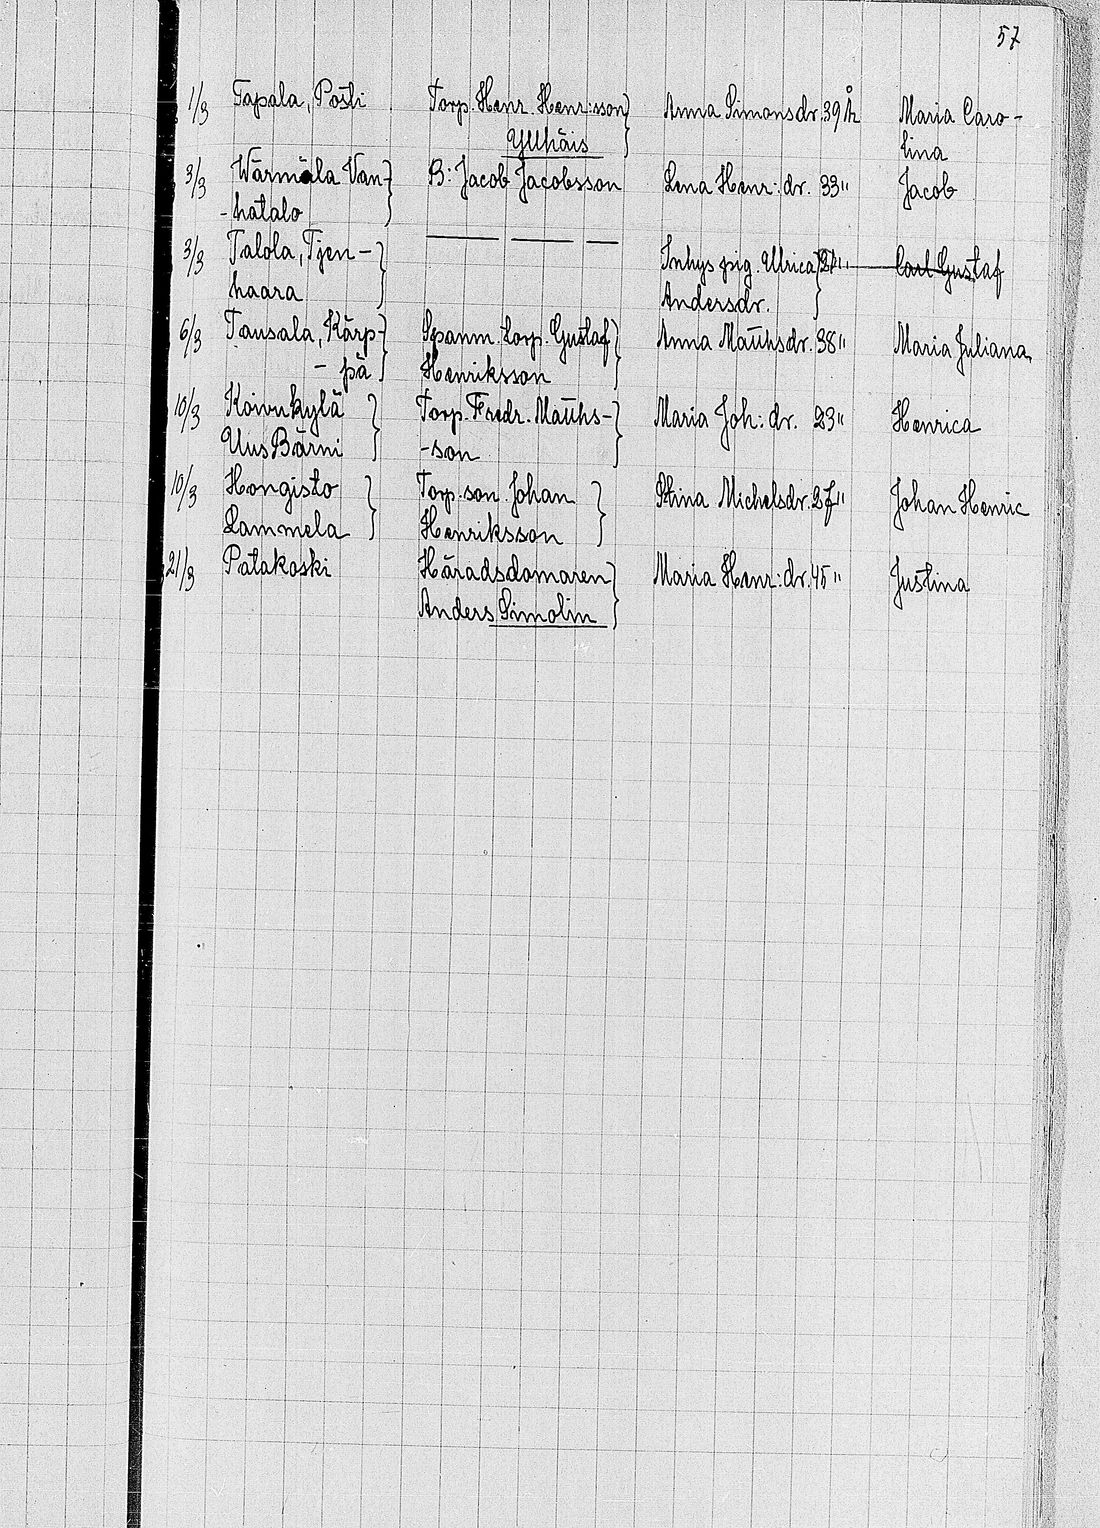 57
1/3 Tapala, Posti Torp. Henr. Henr:sson} Anna Simonsdr. 39 År Maria Caro-
Yllhäis lina
3/3 Wärmäla Van-} B: Jacob Jacobsson Lena Henr: dr. 33 " Jacob
-hatalo
3/3 Talola, Tjen-} — — — Inhys pig. Ulrica} " Carl Gustaf
haara Andersdr.
6/3 Tausala, Kärp-} Spanm. torp. Gustaf} Anna Matths dr. 38 " Maria Juliana
- pä Henriksson
10/3 Koivukylä} Torp. Fredr. Matths-} Maria Joh: dr. 23 " Henrica
Uus Bärni -son
10/3 Hongisto} Torp. son. Johan} Stina Michelsdr. 27 " Johan Henric
Lammela Henriksson
21/3 Patakoski Häradsdomaren} Maria Henr: dr. 45 " Justina
Anders Simolin